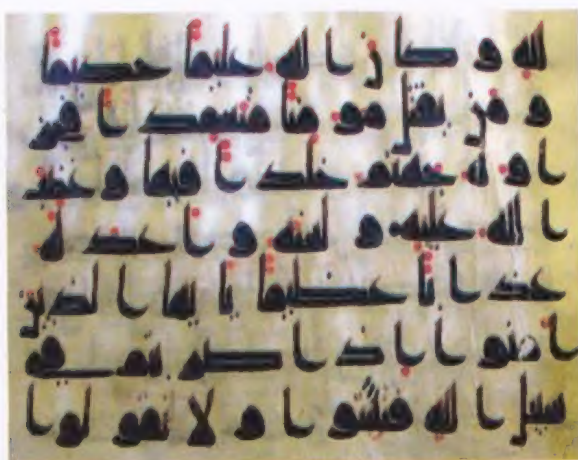 لله و كا ن ا لله عليما حكيما
و من يقتل مو منا متعمد ا فجز
ا و ه جهنم خلد ا فيها و غضب
ا لله عليه و لعنه و ا عد له
عذ ا با عظيما يا يها ا لذين
ا منو ا ا ذ ا ضر بتم في
سبيل ا لله فتبينو ا و لا تقو لو ا